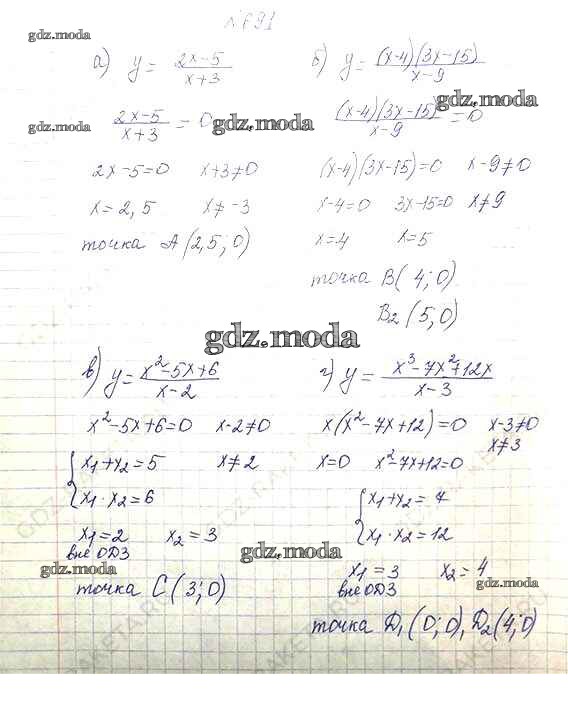 №691
gdz.moda
а) y = (2x-5)/(x+3)
(2x-5)/(x+3) = 0
gdz.moda gdz.moda
2x-5=0 x+3≠0
x=2,5 x≠-3
точка A(2,5; 0)
б) y = (x-4)(3x-15)/(x-9)
gdz.moda
(x-4)(3x-15)/(x-9) = 0
(x-4)(3x-15)=0 x-9≠0
x-4=0 3x-15=0 x≠9
x=4 x=5
точка B(4;0)
B₂(5;0)
gdz.moda
в) y = (x²-5x+6)/(x-2)
x²-5x+6=0 x-2≠0
{x₁+x₂=5 x≠2
x₁·x₂=6
x₁=2 x₂=3
вне ОДЗ
gdz.moda gdz.moda
точка C(3;0)
г) y = (x³-7x²+12x)/(x-3)
x(x²-7x+12)=0 x-3≠0
x≠3
x=0 x²-7x+12=0
{x₁+x₂=7
x₁·x₂=12
x₁=3 x₂=4
вне ОДЗ
gdz.moda
точка D₁(0;0), D₂(4;0)